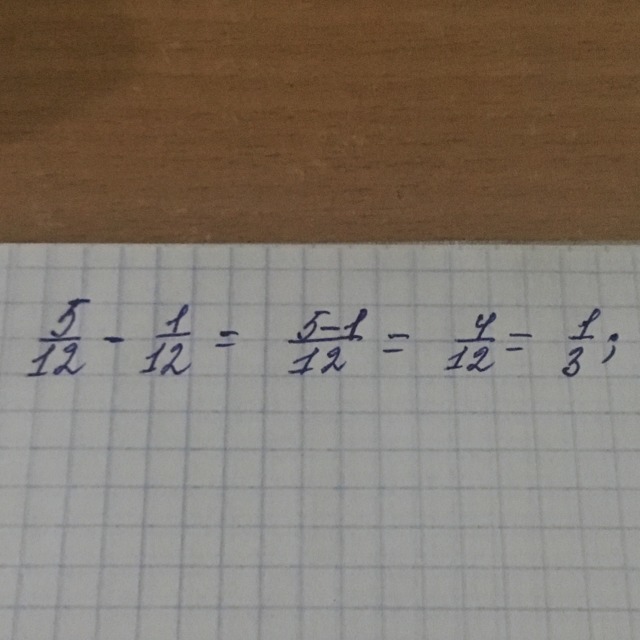 5/12 - 1/12 = 5-1/12 = 4/12 = 1/3;